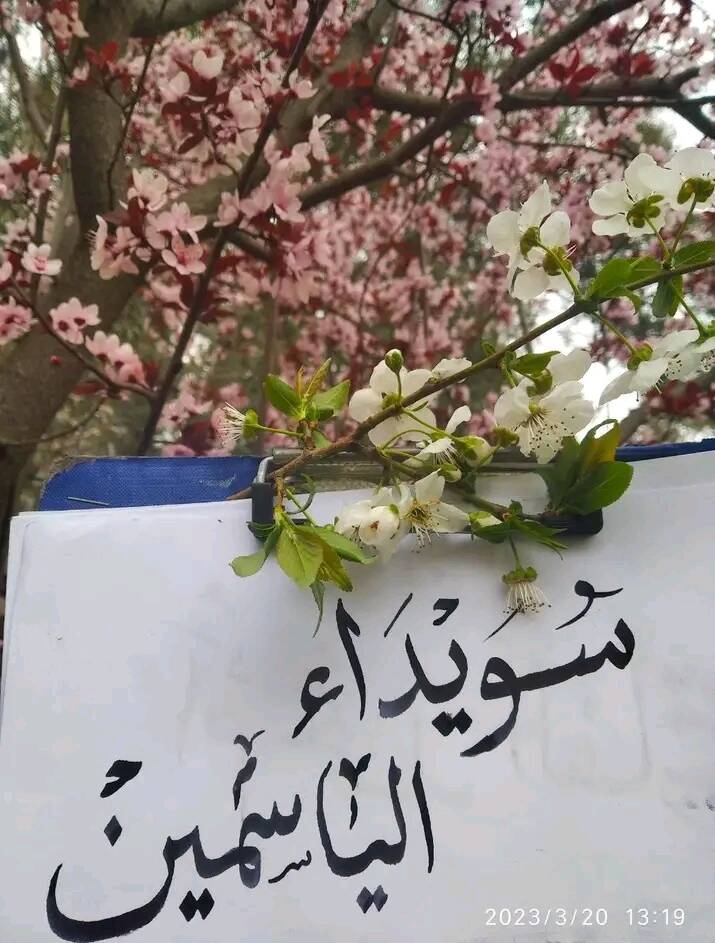 سُوَيْدَاء
الياسمين
2023/3/20 13:19